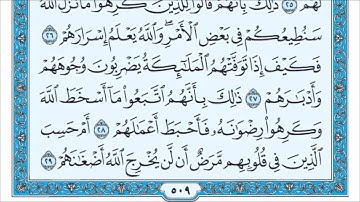 لَهُمْ ٢٥ ذَٰلِكَ بِأَنَّهُمْ قَالُوا۟ لِلَّذِينَ كَرِهُوا۟ مَا نَزَّلَ ٱللَّهُ
سَنُطِيعُكُمْ فِى بَعْضِ ٱلْأَمْرِ ۖ وَٱللَّهُ يَعْلَمُ إِسْرَارَهُمْ ٢٦
فَكَيْفَ إِذَا تَوَفَّتْهُمُ ٱلْمَلَـٰٓئِكَةُ يَضْرِبُونَ وُجُوهَهُمْ
وَأَدْبَـٰرَهُمْ ٢٧ ذَٰلِكَ بِأَنَّهُمُ ٱتَّبَعُوا۟ مَآ أَسْخَطَ ٱللَّهَ
وَكَرِهُوا۟ رِضْوَٰنَهُۥ فَأَحْبَطَ أَعْمَـٰلَهُمْ ٢٨ أَمْ حَسِبَ
ٱلَّذِينَ فِى قُلُوبِهِم مَّرَضٌ أَن لَّن يُخْرِجَ ٱللَّهُ أَضْغَـٰنَهُمْ ٢٩
٥٠٩